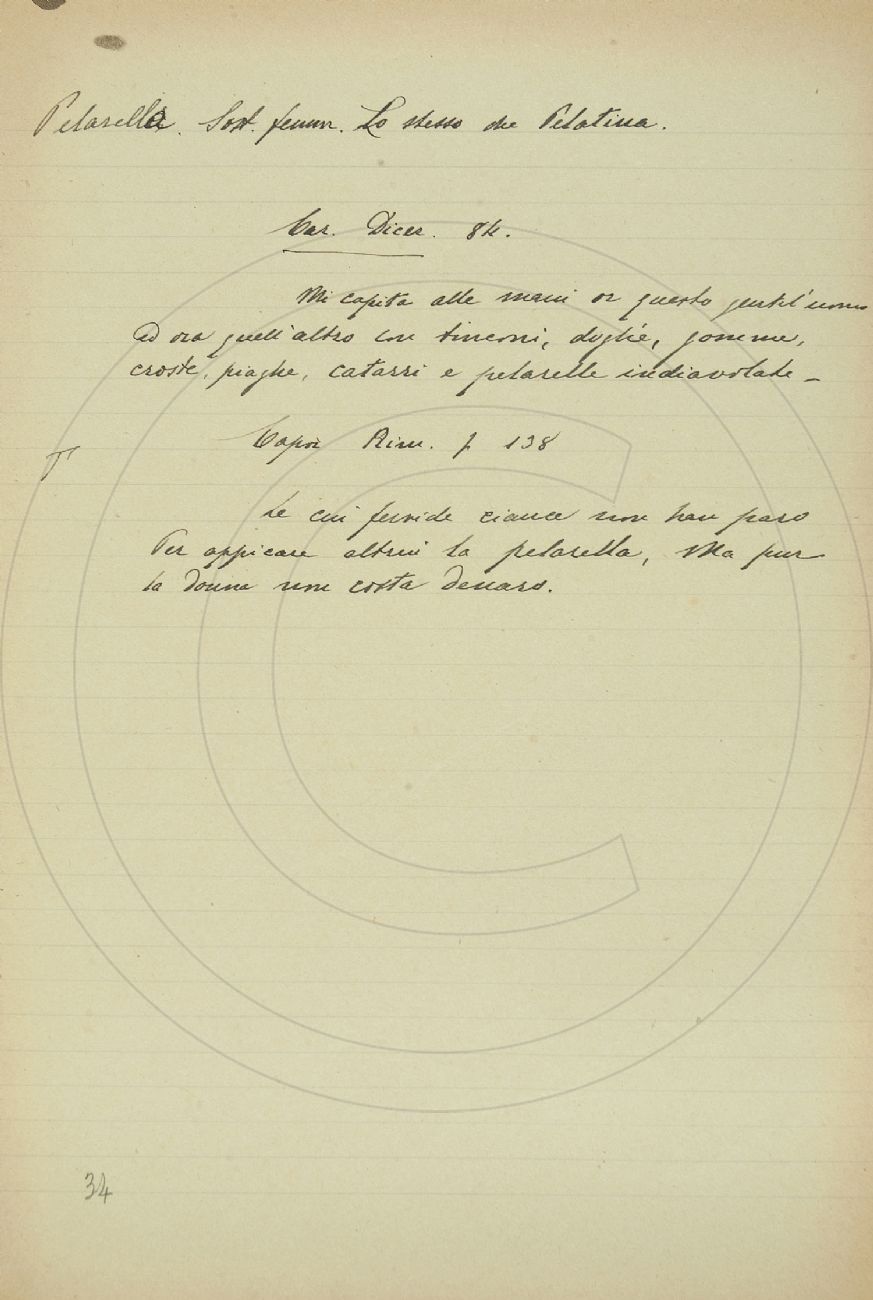 Pelarella. Sost. femm. Lo stesso che Pelatina.
Car. Dicer. 84.
Mi capita alle mani or questo gentil'uomo
ed ora quell'altro con tinconi, doglie, gomme,
croste, piaghe, catarri e pelarelle indiavolate _
Capor Rim. p 138
Le cui fervide ciance non han paro
Per appicare altrui la pelarella, Ma pur
la donna non costa denaro.
34